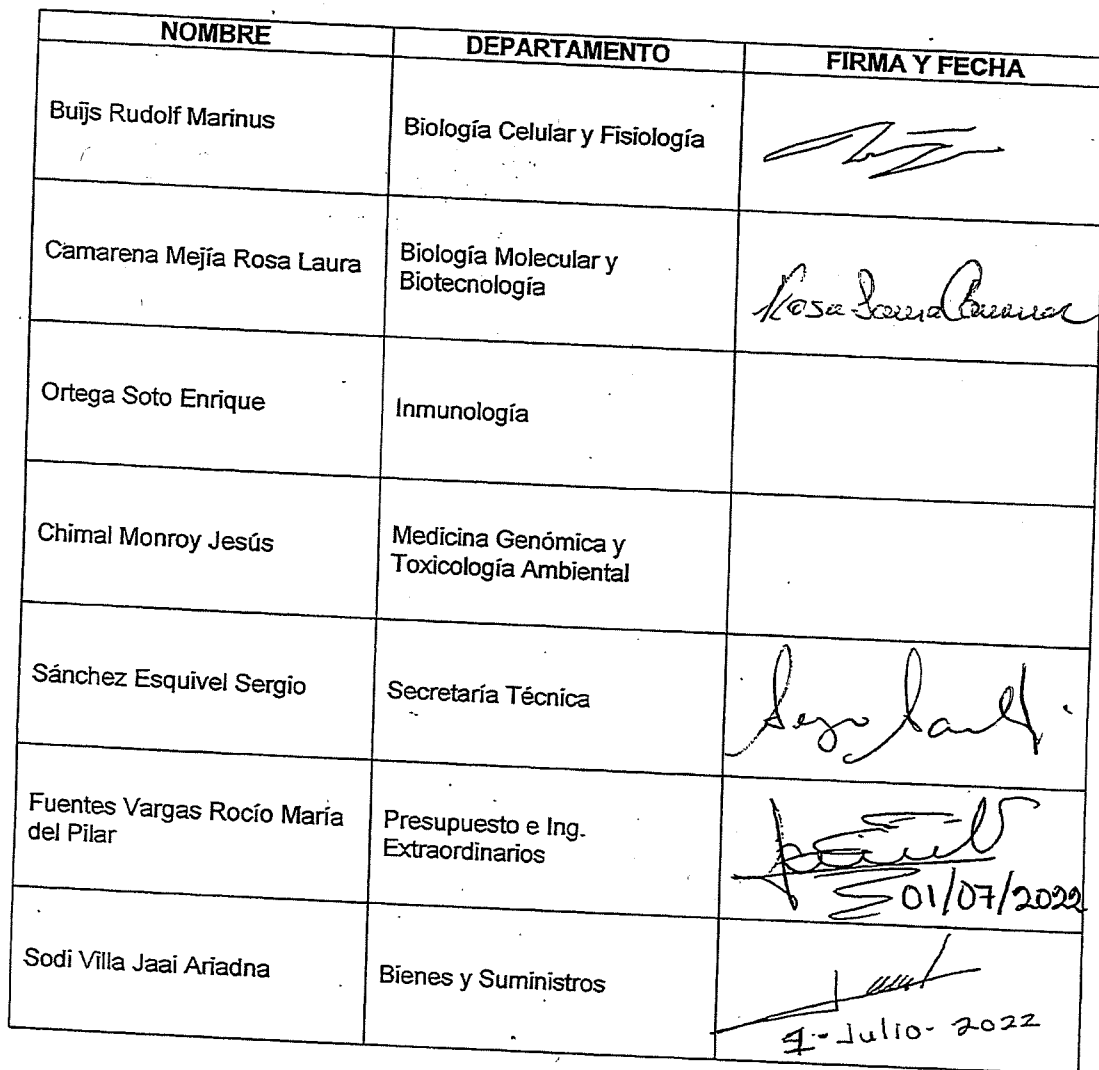 NOMBRE DEPARTAMENTO FIRMA Y FECHA
Buijs Rudolf Marinus Biología Celular y Fisiología
Camarena Mejía Rosa Laura Biología Molecular y
Biotecnología
Rosa Laura Camarena
Ortega Soto Enrique Inmunología
Chimal Monroy Jesús Medicina Genómica y
Toxicología Ambiental
Sánchez Esquivel Sergio Secretaría Técnica
Fuentes Vargas Rocío María
del Pilar
Presupuesto e Ing.
Extraordinarios
01/07/2022
Sodi Villa Jaai Ariadna Bienes y Suministros
Julio- 2022